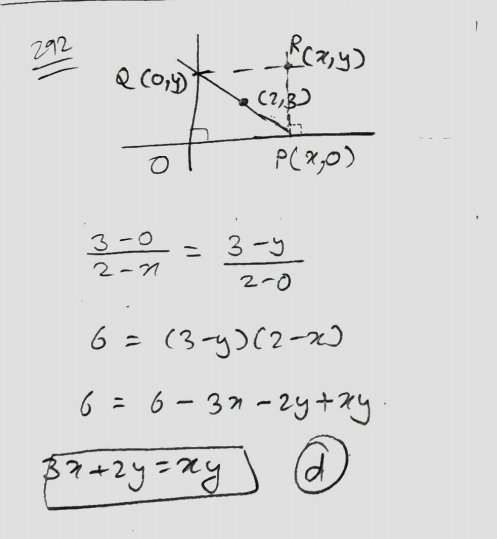 292
R(x,y)
Q (0,y)
(2,3)
O
P(x,0)
3-0/2-x = 3-y/2-0
6 = (3-y)(2-x)
6 = 6 - 3x - 2y + xy.
3x+2y=xy (d)